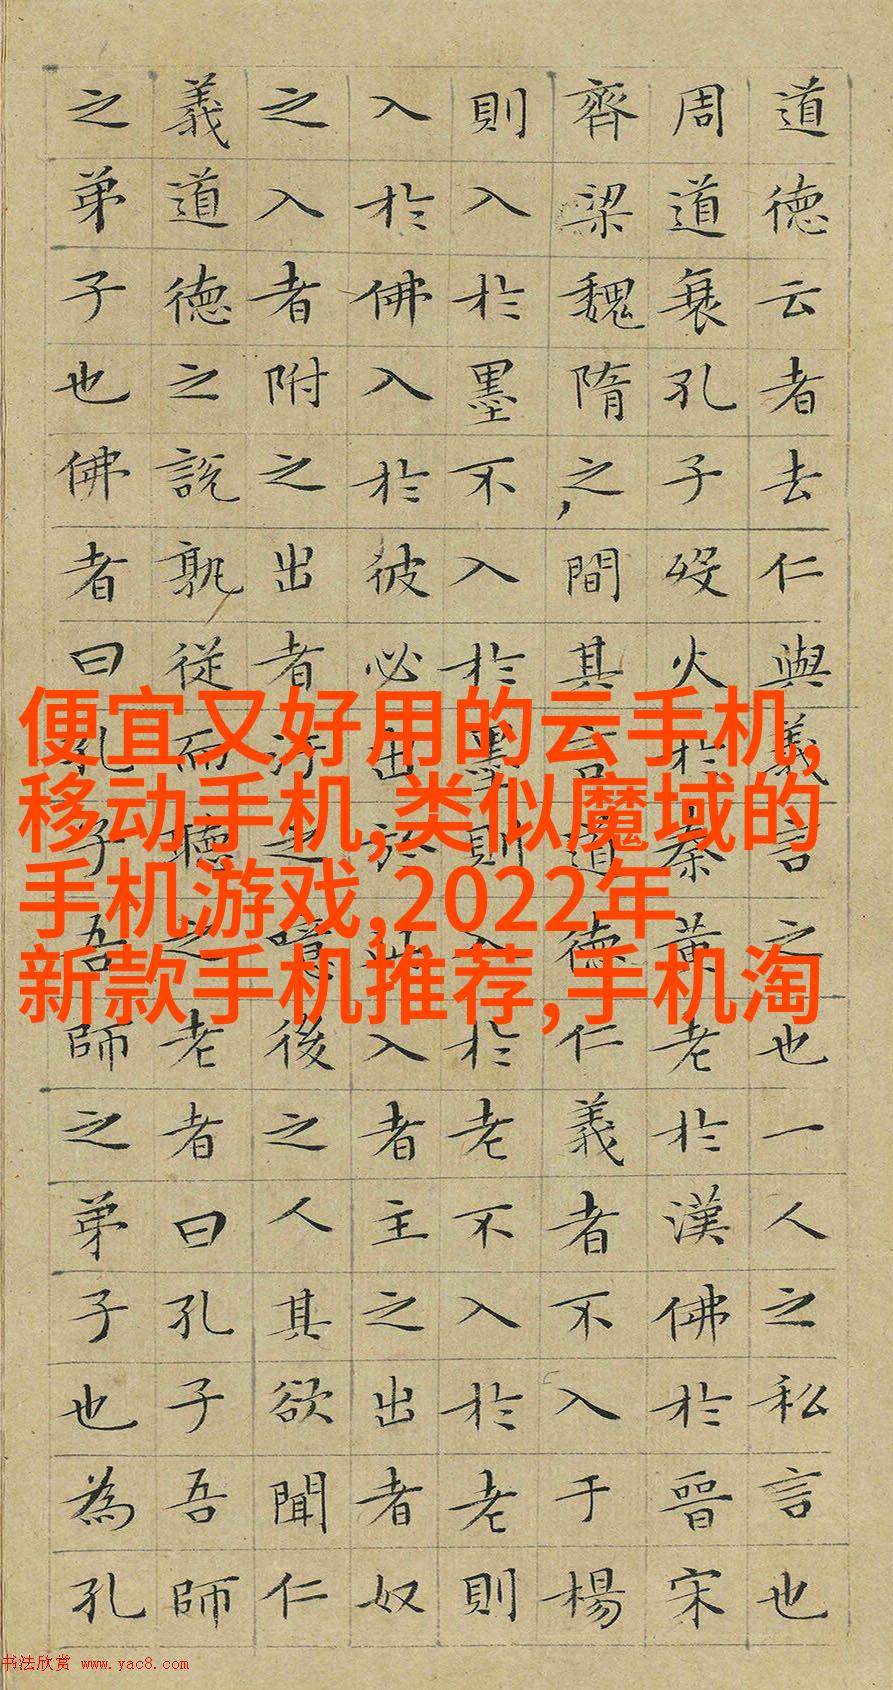 道德云者去仁與義言之也一人之私言也
周道衰孔子歿火於秦黄老於漢佛於晉宋
齊梁魏隋之間其言道德仁義者不入于楊
則入於墨不入於墨則入於老不入於老則
入於佛入於彼必出於此入者主之出者奴
之入者附之出者汙之噫後之人其欲聞仁
義道德之説孰從而聽之老者曰孔子吾師
之弟子也佛者曰孔子吾師之弟子也為孔
便宜又好用的云手机,
移动手机,类似魔域的
手机游戏,2022年
新款手机推荐,手机淘
书法欣赏 www.yac8.com